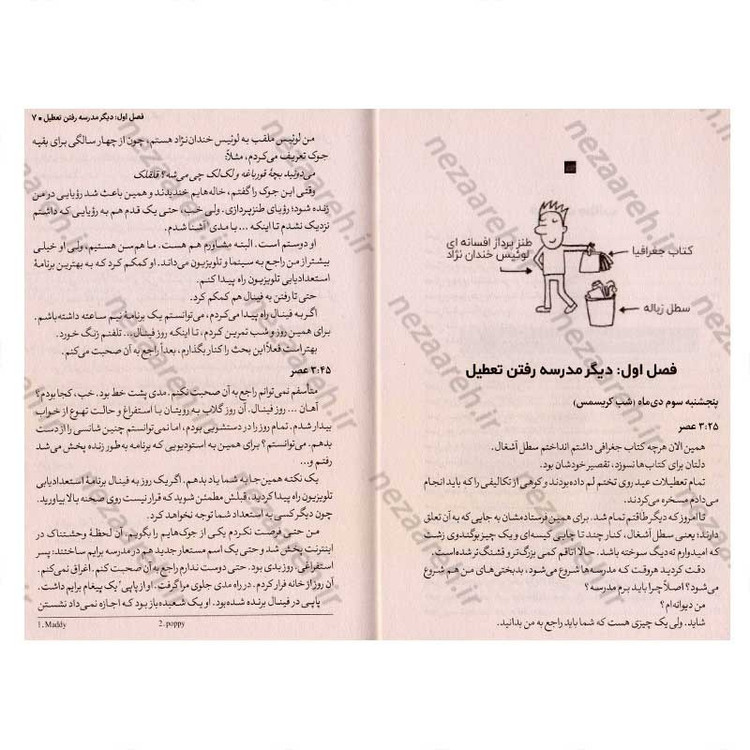 طنز پرداز افسانه ای
لوئیس خندان نژاد
کتاب جغرافیا
سطل زباله
فصل اول: دیگر مدرسه رفتن تعطیل
پنجشنبه سوم دی‌ماه (شب کریسمس)
۳:۲۵ عصر
همین الان هرچه کتاب جغرافی داشتم انداختم سطل آشغال.
دلتان برای کتاب‌ها نسوزد، تقصیر خودشان بود.
تمام تعطیلات عید روی تختم لم داده بودند و کوهی از تکالیفی را که باید انجام
می‌دادم مسخره می‌کردند.
تا امروز که دیگر طاقتم تمام شد. برای همین فرستادمشان به جایی که به آن تعلق
دارند؛ یعنی سطل آشغال، کنار چند تا چایی کیسه‌ای و یک چیز بوگندوی زشت
که امیدوارم ته‌دیگ سوخته باشد. حالا اتاقم کمی بزرگ‌تر و قشنگ‌تر شده است.
دقت کردید هروقت که مدرسه‌ها شروع می‌شود، بدبختی‌های من هم شروع
می‌شود؟ اصلاً چرا باید برم مدرسه؟
من دیوانه‌ام؟
شاید. ولی یک چیزی هست که شما باید راجع به من بدانید.
فصل اول: دیگر مدرسه رفتن تعطیل ● ۷
من لوئیس ملقب به لوئیس خندان‌نژاد هستم، چون از چهار سالگی برای بقیه
جوک تعریف می‌کردم، مثلاً:
می‌دونید بچهٔ قورباغه و لک‌لک چی می‌شه؟ قلقلک
وقتی این جوک را گفتم، خاله‌هایم خندیدند و همین باعث شد رؤیایی در من
زنده شود؛ رؤیای طنزپردازی. ولی خب، حتی یک قدم هم به رؤیایی که داشتم
نزدیک نشدم تا اینکه ... با مدی¹ آشنا شدم.
او دوستم است. البته مشاورم هم هست. ما هم‌سن هستیم، ولی او خیلی
بیشتر از من راجع به سینما و تلویزیون می‌داند. او کمکم کرد که به بهترین برنامهٔ
استعدادیابی تلویزیون راه پیدا کنم.
حتی تا رفتن به فینال هم کمکم کرد.
اگر به فینال راه پیدا می‌کردم، می‌توانستم یک برنامهٔ نیم ساعته داشته باشم.
برای همین روز و شب تمرین کردم، تا اینکه روز فینال... تلفنم زنگ خورد.
بهتر است فعلاً این بحث را کنار بگذارم، بعداً راجع به آن صحبت می‌کنم.
۳:۴۵ عصر
متأسفم نمی‌توانم راجع به آن صحبت نکنم. مدی پشت خط بود. خب، کجا بودم؟
آهان ... روز فینال. آن روز گلاب به رویتان با استفراغ و حالت تهوع از خواب
بیدار شدم. تمام روز را در دستشویی بودم، اما نمی‌توانستم چنین شانسی را از دست
بدهم. می‌توانستم؟ برای همین به استودیویی که برنامه به‌طور زنده پخش می‌شد
رفتم و...
یک نکته همین‌جا به شما یاد بدهم. اگر یک روز به فینال برنامهٔ استعدادیابی
تلویزیون راه پیدا کردید، قبلش مطمئن شوید که قرار نیست روی صحنه بالا بیاورید.
چون دیگر کسی به استعداد شما توجه نخواهد کرد.
من حتی فرصت نکردم یکی از جوک‌هایم را بگویم. آن لحظهٔ وحشتناک در
اینترنت پخش شد و حتی یک اسم مستعار جدید هم در مدرسه برایم ساختند؛ پسر
استفراغی. روز بدی بود. حتی دوست ندارم راجع به آن صحبت کنم. اغراق نمی‌کنم.
آن روز از خانه فرار کردم. در راه مدی جلوی مرا گرفت. او از پاپی² یک پیغام برایم داشت.
پاپی در فینال برنده شده بود. او یک شعبده‌باز بود که اجازه نمی‌داد نشستن
1. Maddy 2. poppy
nezaareh.ir